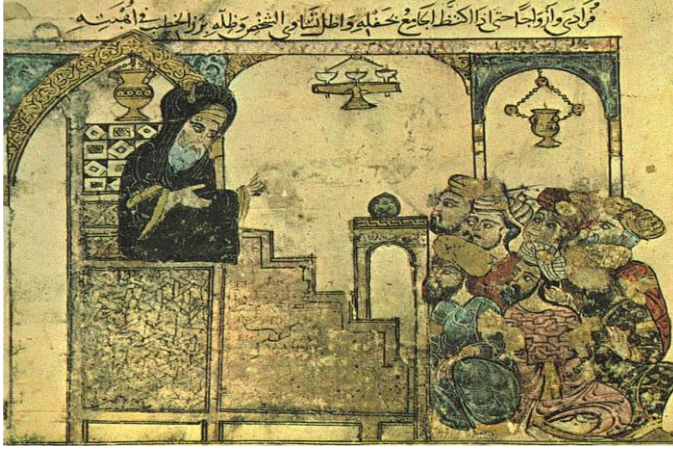 فرادى وأزواجا حتى إذا اكتظ الجامع بحفله واظل تساوي الشخص وظله برز الخطيب في أهبته